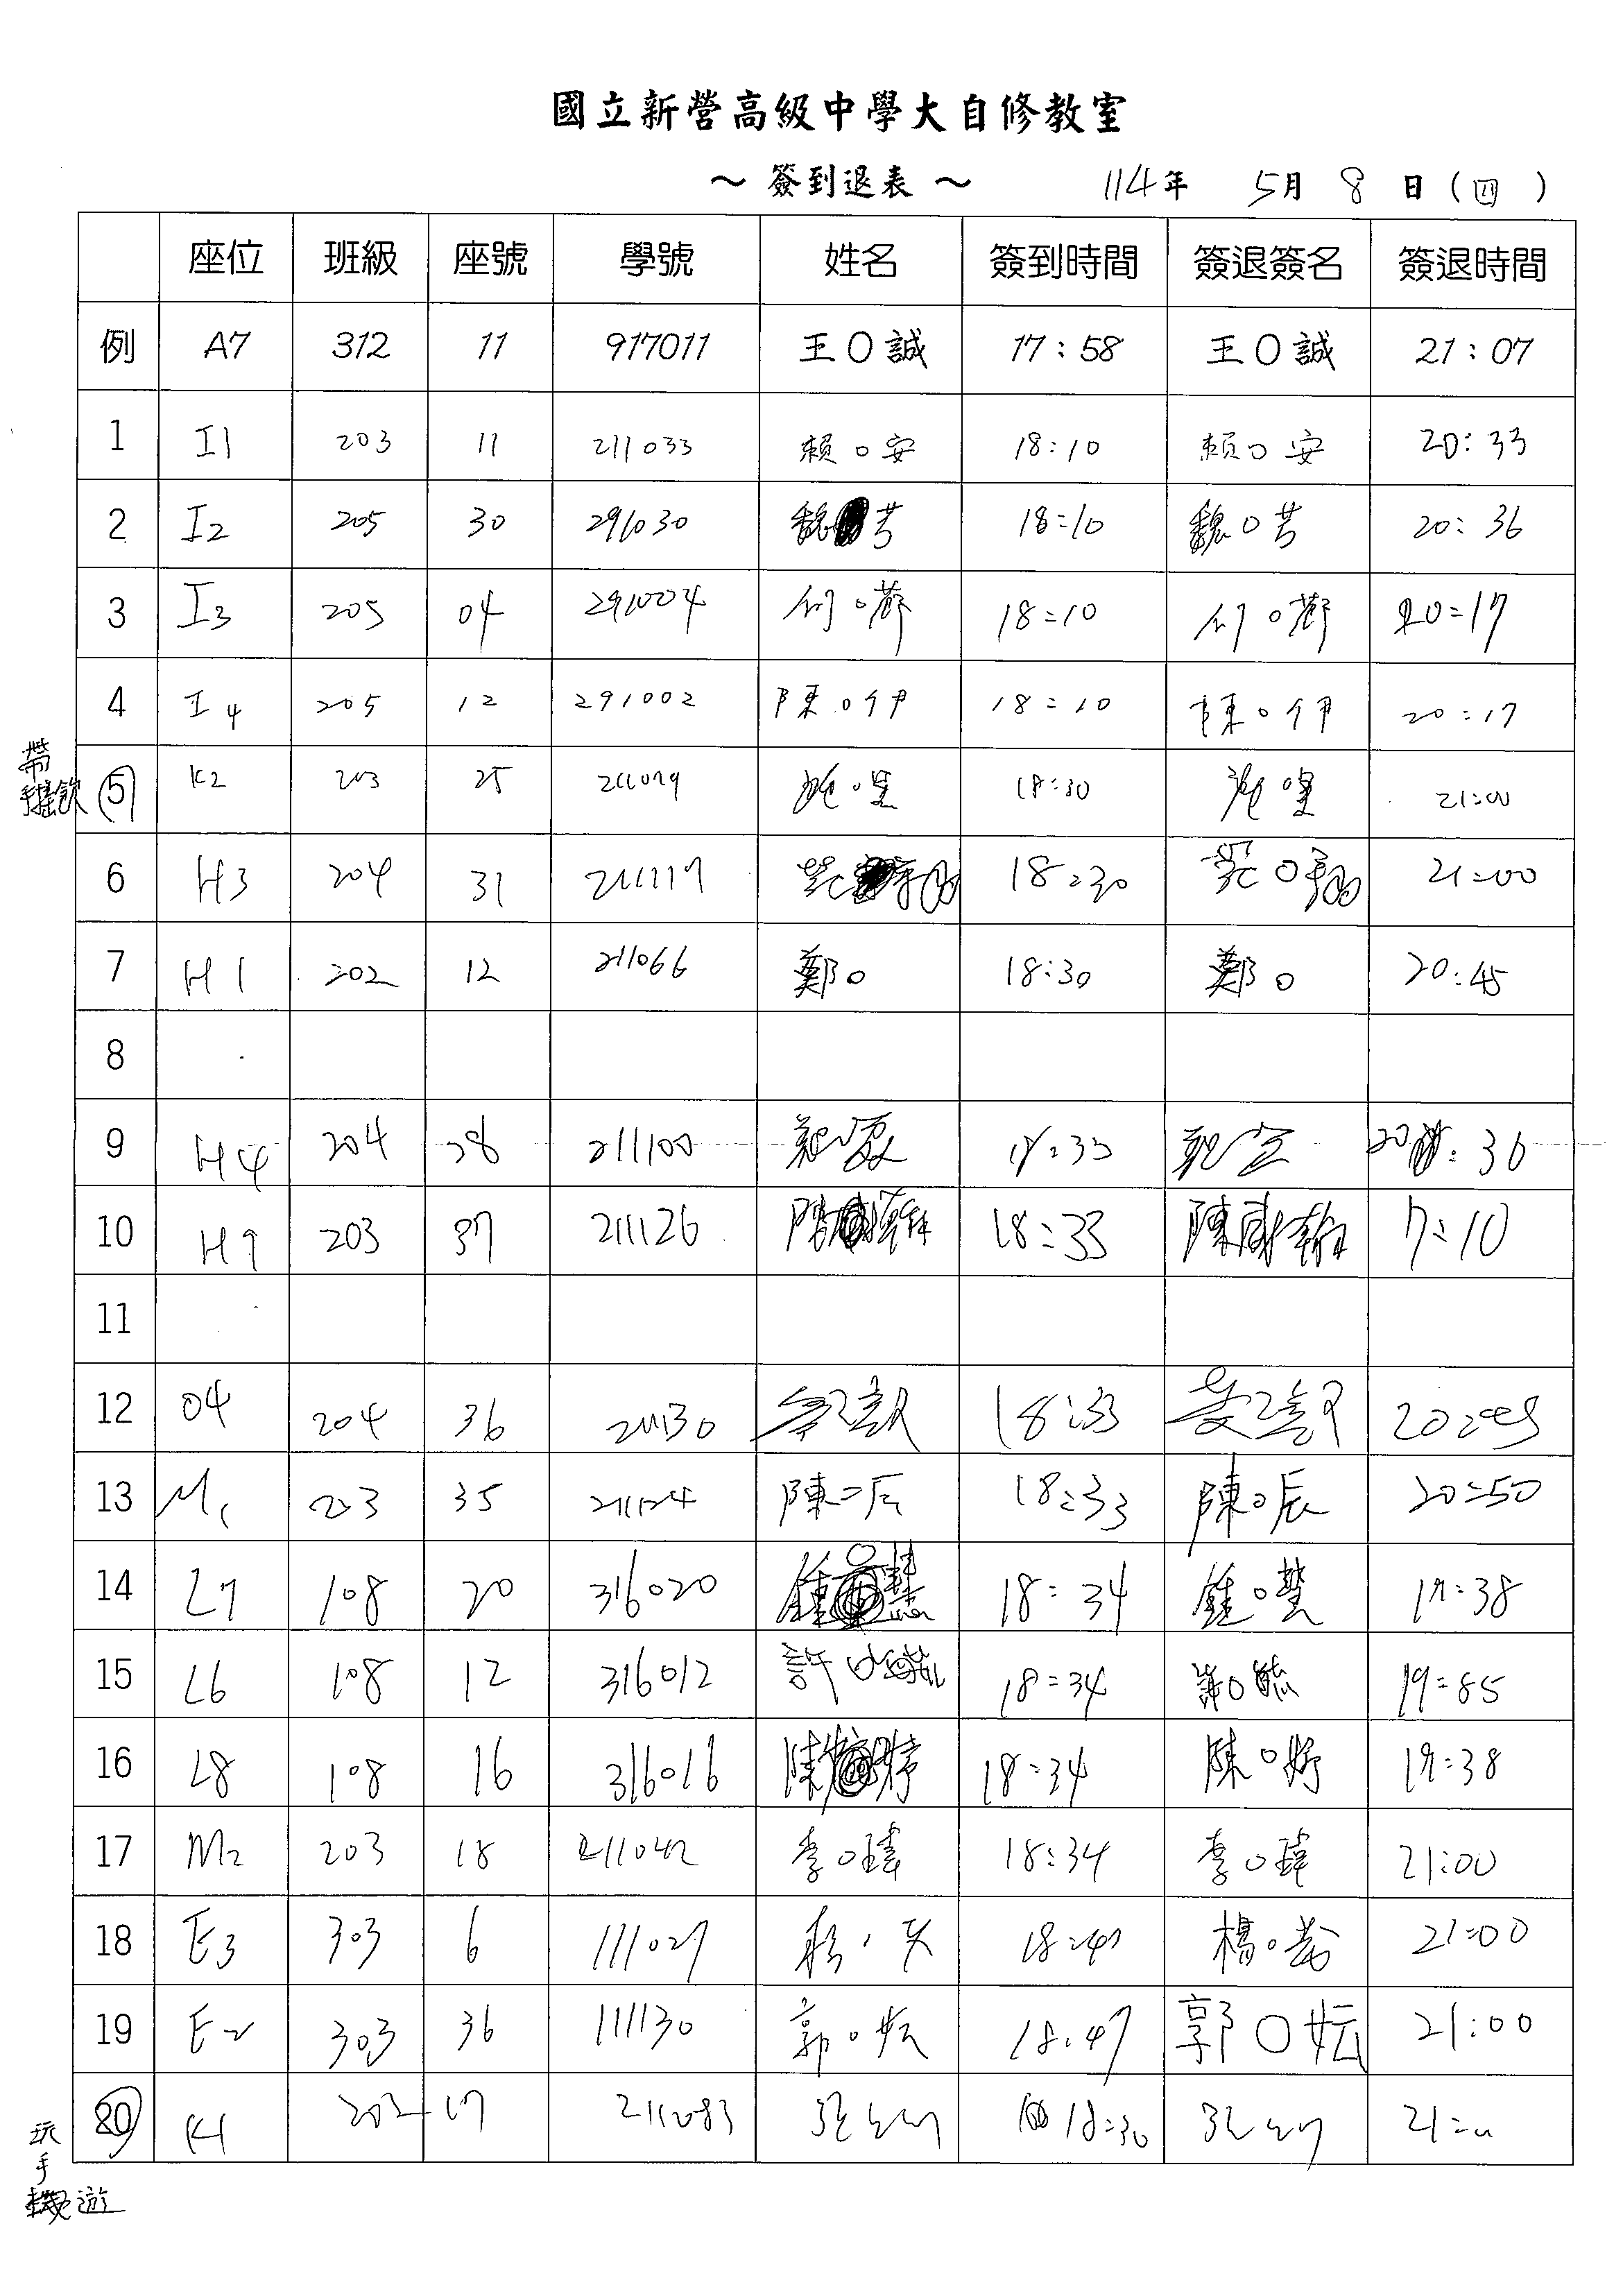 國立新營高級中學大自修教室
～ 簽到退表 ～ 114年 5月 8日(四)
座位 班級 座號 學號 姓名 簽到時間 簽退簽名 簽退時間
例 A7 312 11 917011 王〇誠 17:58 王〇誠 21:07
1 I1 203 11 211033 賴〇安 18:10 賴〇安 20:33
2 I2 205 30 291030 魏 芳 18:10 魏〇芳 20:36
3 I3 205 04 291004 18:10 20:17
4 I4 205 12 291002 陳〇伊 18:10 陳〇伊 20:17
帶
手搖飲 5 K2 203 25 施〇 18:30 施〇 21:00
6 H3 204 31 211117 范 18:30 范〇翔 21:00
7 H1 202 12 211066 鄭〇 18:30 鄭〇 20:45
8
9 H4 204 28 211100 鄭 20 :36
10 H7 203 37 211126 陳 18:33 陳 7:10
11
12 04 204 36 211130 18:33 20:45
13 M1 203 35 211124 陳〇辰 18:33 陳〇辰 20:50
14 L7 108 20 316020 鍾 慧 18:34 鍾〇慧 19:38
15 L6 108 12 316012 許〇毓 18:34 許〇毓 19:
16 L8 108 16 316016 陳 婷 18:34 陳〇婷 19:38
17 M2 203 18 211042 李〇瑋 18:34 李〇瑋 21:00
18 E3 303 6 111027 18:47 楊〇 21:00
19 E2 303 36 111130 郭〇妘 18:47 郭〇妘 21:00
20 K1 202 17 211083 張 18:30 張 21:00
玩
手
機遊